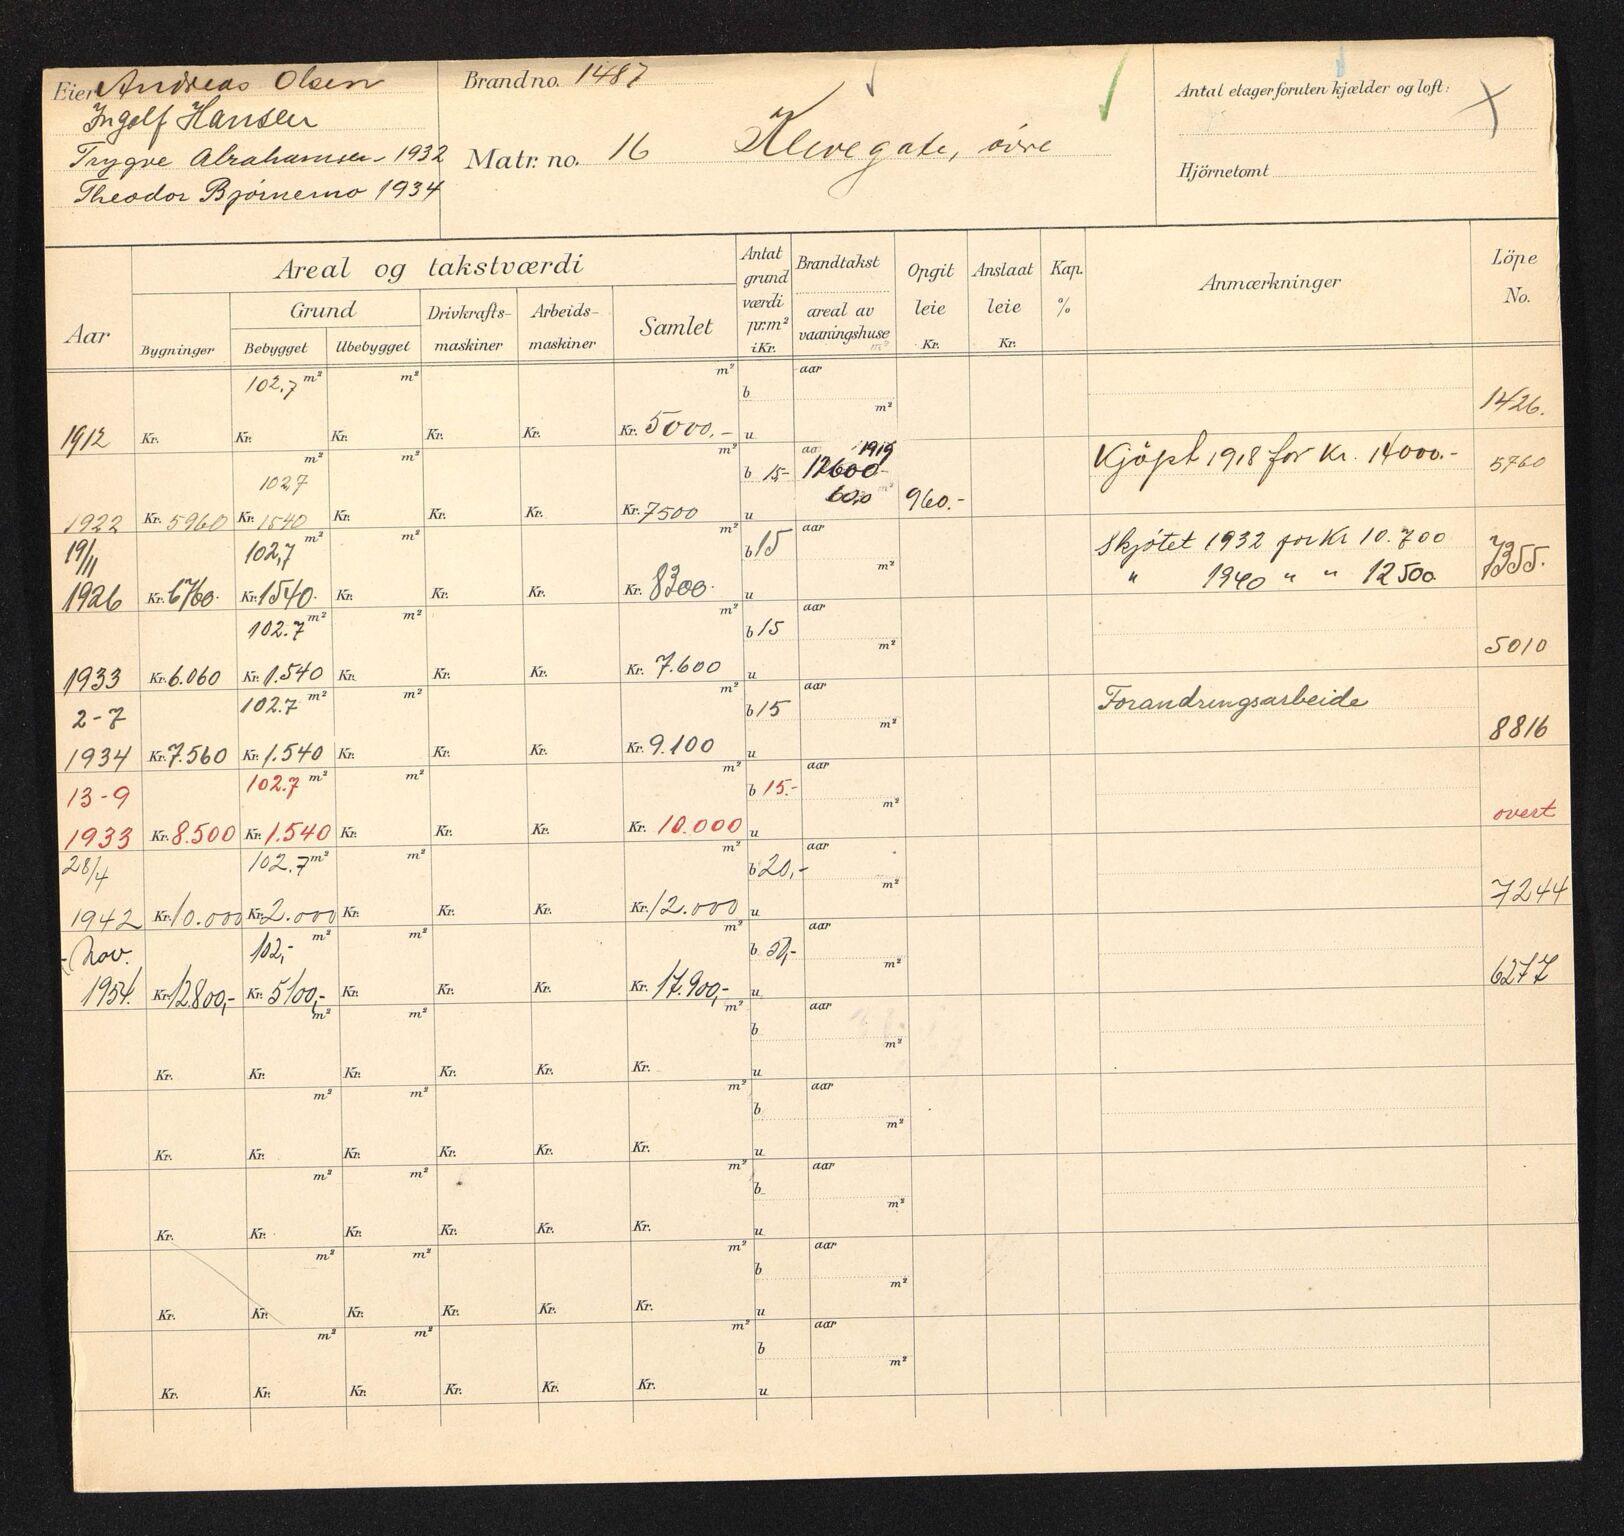 Eier Andreas Olsen
Ingolf Hansen
Trygve Abrahamsen - 1932
Theodor Bjørnemo 1934
Brandno. 1487
Matr. no. 16 Klevegate, øvre
Antal etager foruten kjælder og loft:
Hjörnetomt
Aar
Areal og takstværdi
Bygninger
Grund
Bebygget
Ubebygget
Drivkrafts-
maskiner
Arbeids-
maskiner
Samlet
Antat
grund
værdi
pr.m²
i Kr.
Brandtakst
areal av
vaaningshuse
m²
Opgit
leie
Kr.
Anslaat
leie
Kr.
Kap.
%
Anmærkninger
Löpe
No.
102.7 m² m² m² b aar m²
1912 Kr. Kr. Kr. Kr. Kr. Kr. 5000.- u 1426.
1027 m² m² m² b 15,- aar 1919 12600- Kjöpt 1918 for Kr. 14000.- 5760
1922 Kr. 5960 Kr. 1540 Kr. Kr. Kr. Kr. 7500 u 60,0 m² 960.-
19/11 102,7 m² m² m² b 15 aar m² Skjøtet 1932 for Kr 10.700
1926 Kr. 6760. Kr. 1540. Kr. Kr. Kr. Kr. 8300. u " 1940 " " 12500. 7355.
102.7 m² m² m² b 15 aar m²
1933 Kr. 6.060 Kr. 1.540 Kr. Kr. Kr. Kr. 7.600 u 5010
2-7 102.7 m² m² m² b 15 aar m² Forandringsarbeide
1934 Kr. 7.560 Kr. 1.540 Kr. Kr. Kr. Kr. 9.100 u 8816
13-9 102.7 m² m² m² b 15.- aar m²
1933 Kr. 8.500 Kr. 1.540 Kr. Kr. Kr. Kr. 10.000 u overt
28/4 102.7 m² m² m² b 20,- aar m²
1942 Kr. 10.000 Kr. 2.000 Kr. Kr. Kr. Kr. 12.000 u 7244
Nov. 102,- m² m² m² b 50,- aar m²
1954. Kr. 12800,- Kr. 5100,- Kr. Kr. Kr. Kr. 17.900,- u 6277
m² m² m² b aar m²
Kr. Kr. Kr. Kr. Kr. Kr. u
m² m² m² b aar m²
Kr. Kr. Kr. Kr. Kr. Kr. u
m² m² m² b aar m²
Kr. Kr. Kr. Kr. Kr. Kr. u
m² m² m² b aar m²
Kr. Kr. Kr. Kr. Kr. Kr. u
m² m² m² b aar m²
Kr. Kr. Kr. Kr. Kr. Kr. u